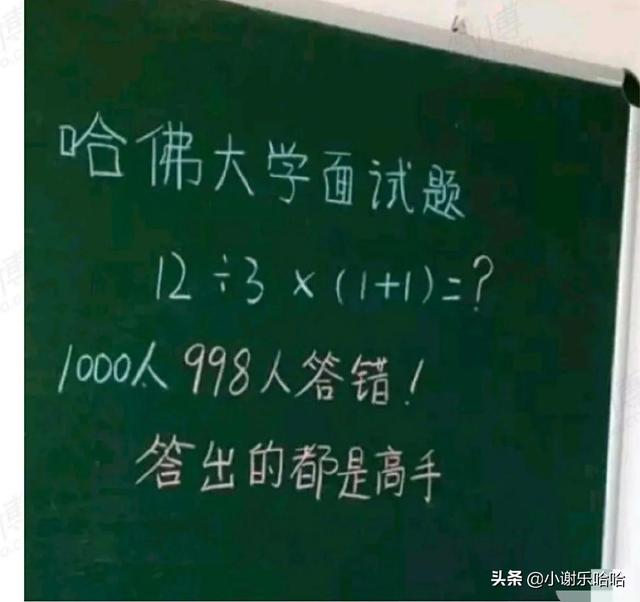 哈佛大学面试题
12÷3×(1+1)=?
1000人998人答错!
答出的都是高手
头条 @小谢乐哈哈